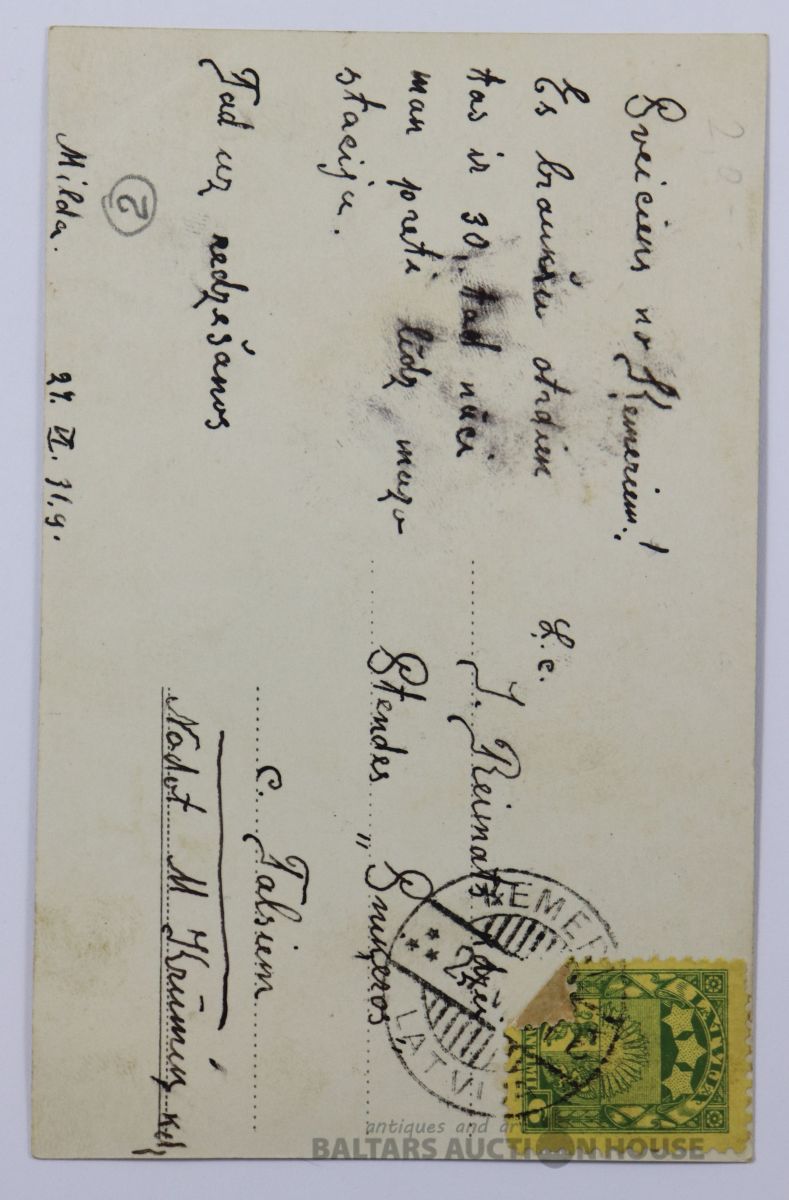 Sveiciens no Ķemeriem!
Es braukšu otrdien
tas ir 30, tad nāci
man preti līdz mazo
staciju.
Tad uz redzešanos
Milda. 24. VI. 31.g.
2
L. c.
J. Reimats
Stendes „Snuķeros„
c. Talsiem
Nodot M Krūmiņ kdz
ĶEMERI
LATVI
LATVIJA
antiques and ar
BALTARS AUCTION HOUSE